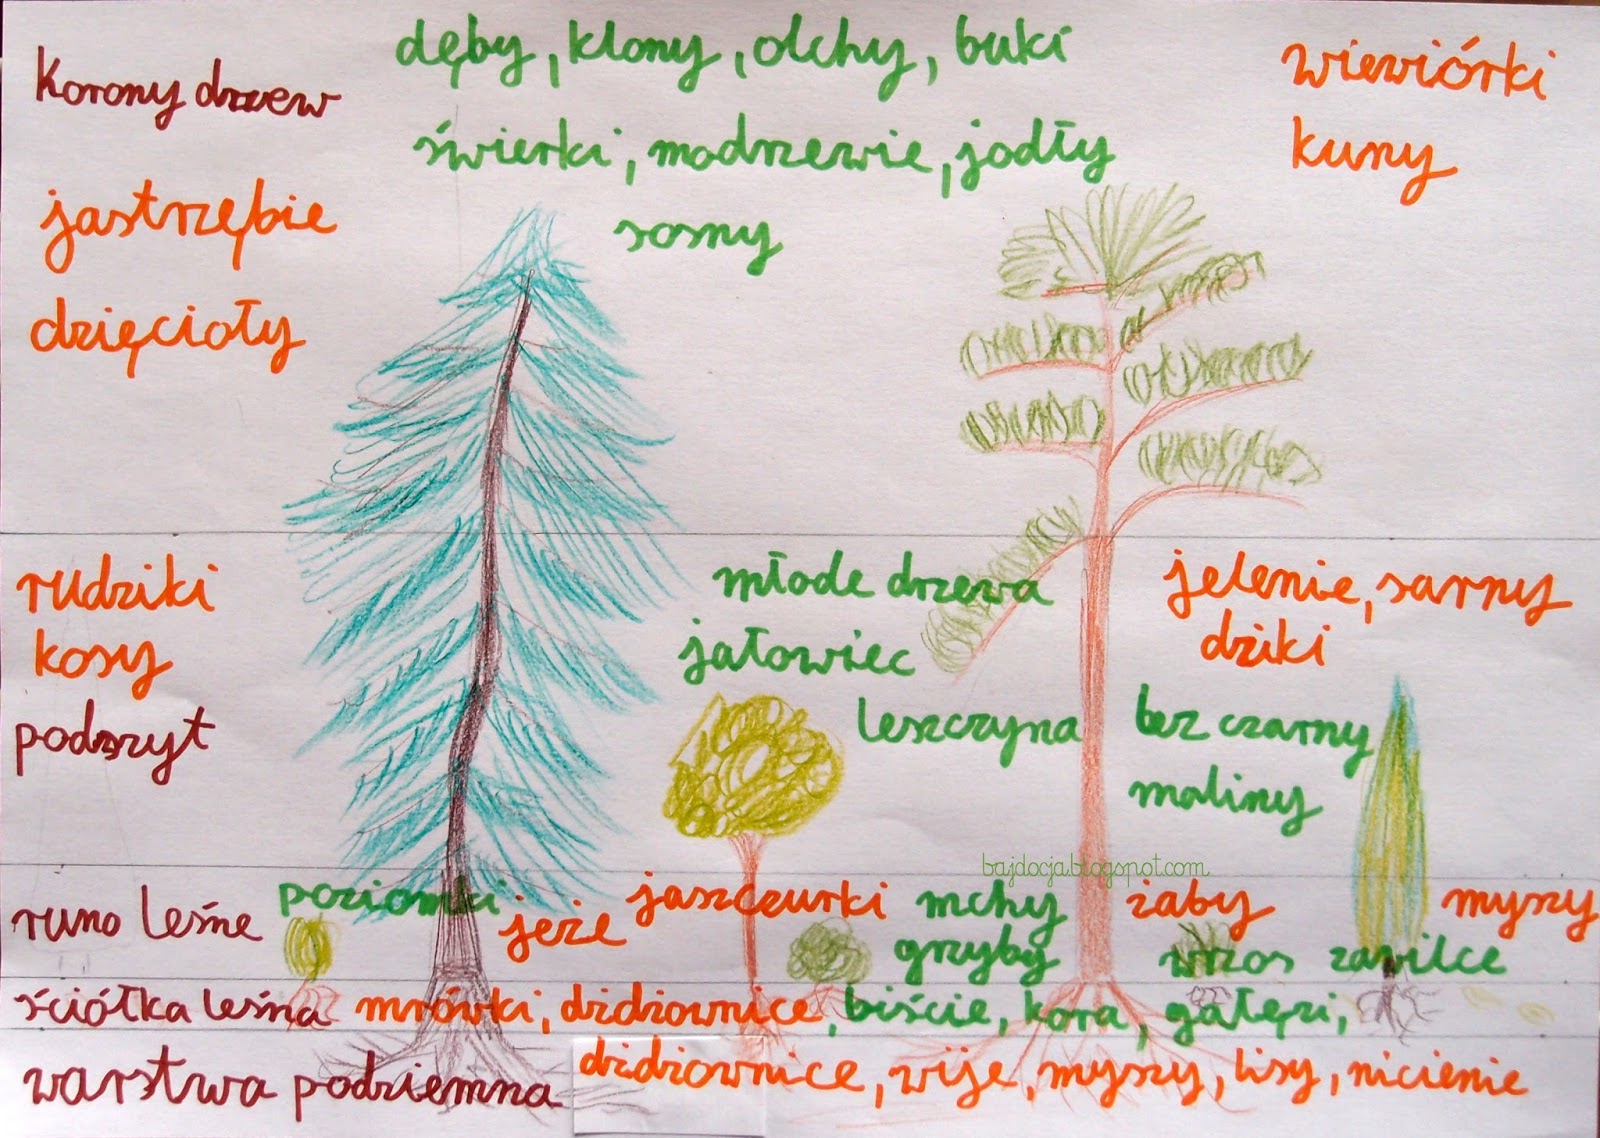 Korony drzew
dęby, klony, olchy, buki
świerki, modrzewie, jodły
sosny
wiewiórki
kuny
jastrzębie
dzięcioły
rudziki
kosy
podszyt
młode drzewa
jałowiec
leszczyna
jelenie, sarny
dziki
bez czarny
maliny
bajdocja.blogspot.com
runo leśne
poziomki jeże jaszczurki mchy żaby myszy
grzyby wrzos zawilce
ściółka leśna mrówki, dżdżownice, liście, kora, gałęzi,
warstwa podziemna dżdżownice, wije, myszy, lisy, nicienie